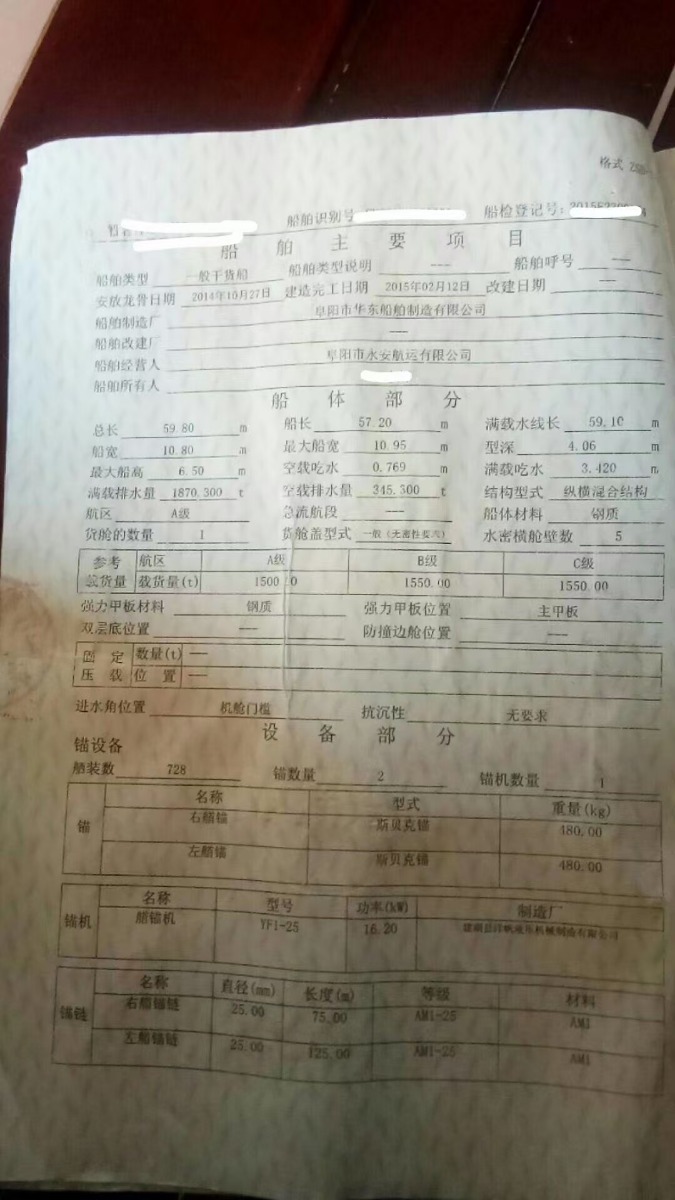 格式
船舶识别号 船检登记号:
船舶主要项目
船舶类型 一般干货船 船舶类型说明 --- 船舶呼号 ---
安放龙骨日期 2014年10月27日 建造完工日期 2015年02月12日 改建日期 ---
船舶制造厂 阜阳市华东船舶制造有限公司
船舶改建厂 ---
船舶经营人 阜阳市永安航运有限公司
船舶所有人
船体部分
总长 59.80 m 船长 57.20 m 满载水线长 59.10 m
船宽 10.80 m 最大船宽 10.95 m 型深 4.06 m
最大船高 6.50 m 空载吃水 0.769 m 满载吃水 3.420 m
满载排水量 1870.300 t 空载排水量 345.300 t 结构型式 纵横混合结构
航区 A级 急流航段 --- 船体材料 钢质
货舱的数量 1 货舱盖型式 一般（无密性要求） 水密横舱壁数 5
参考 航区 A级 B级 C级
载货量 载货量(t) 1500 0 1550.00 1550.00
强力甲板材料 钢质 强力甲板位置 主甲板
双层底位置 --- 防撞边舱位置 ---
固定 数量(t) ---
压载 位置 ---
进水角位置 机舱门槛 抗沉性 无要求
设备部分
锚设备
舾装数 728 锚数量 2 锚机数量 1
名称 型式 重量(kg)
锚 右艏锚 斯贝克锚 480.00
左艏锚 斯贝克锚 480.00
名称 型号 功率(kW) 制造厂
锚机 艏锚机 YF1-25 16.20
名称 直径(mm) 长度(m) 等级 材料
锚链 右艏锚链 25.00 75.00 AM1-25 AM1
左艏锚链 25.00 125.00 AM1-25 AM1